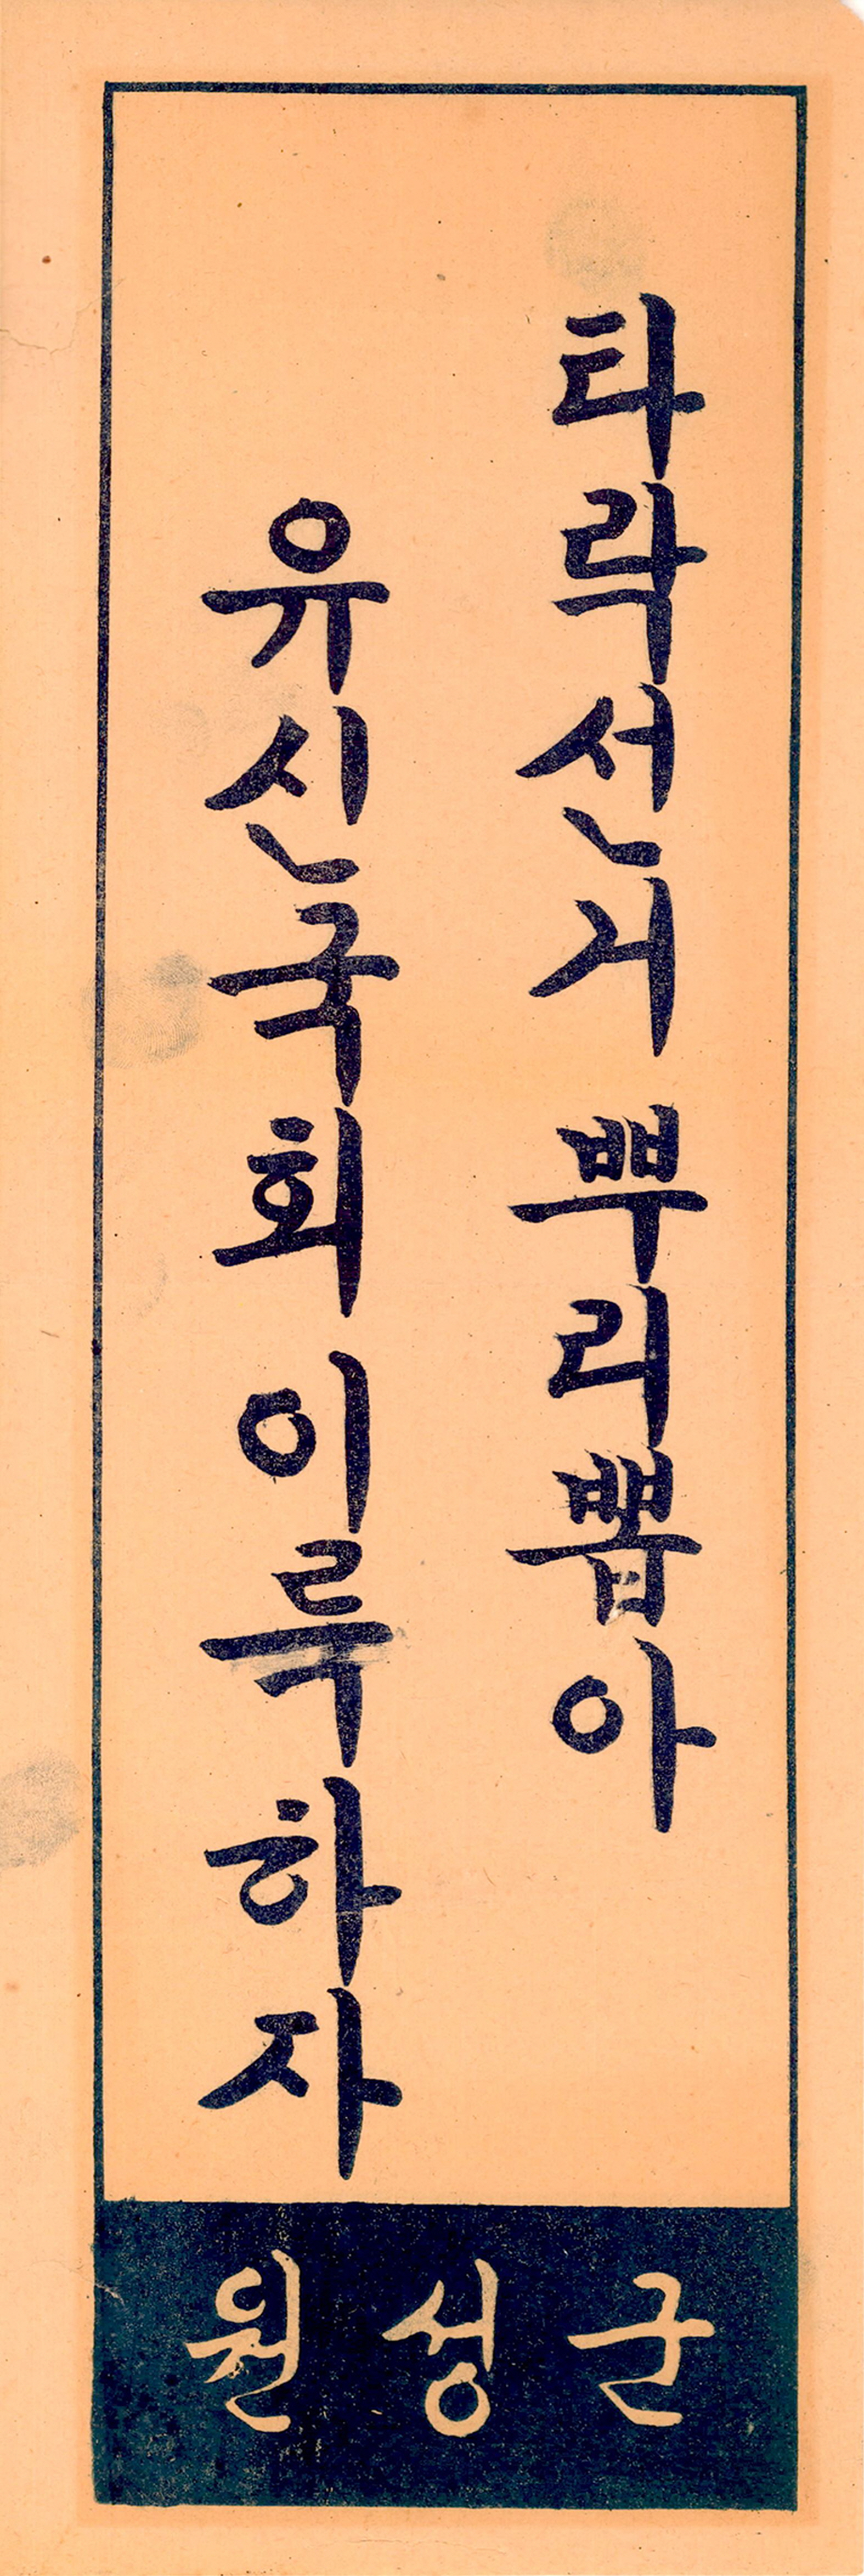 타락선거 뿌리뽑아
유신국회 이룩하자
원성군